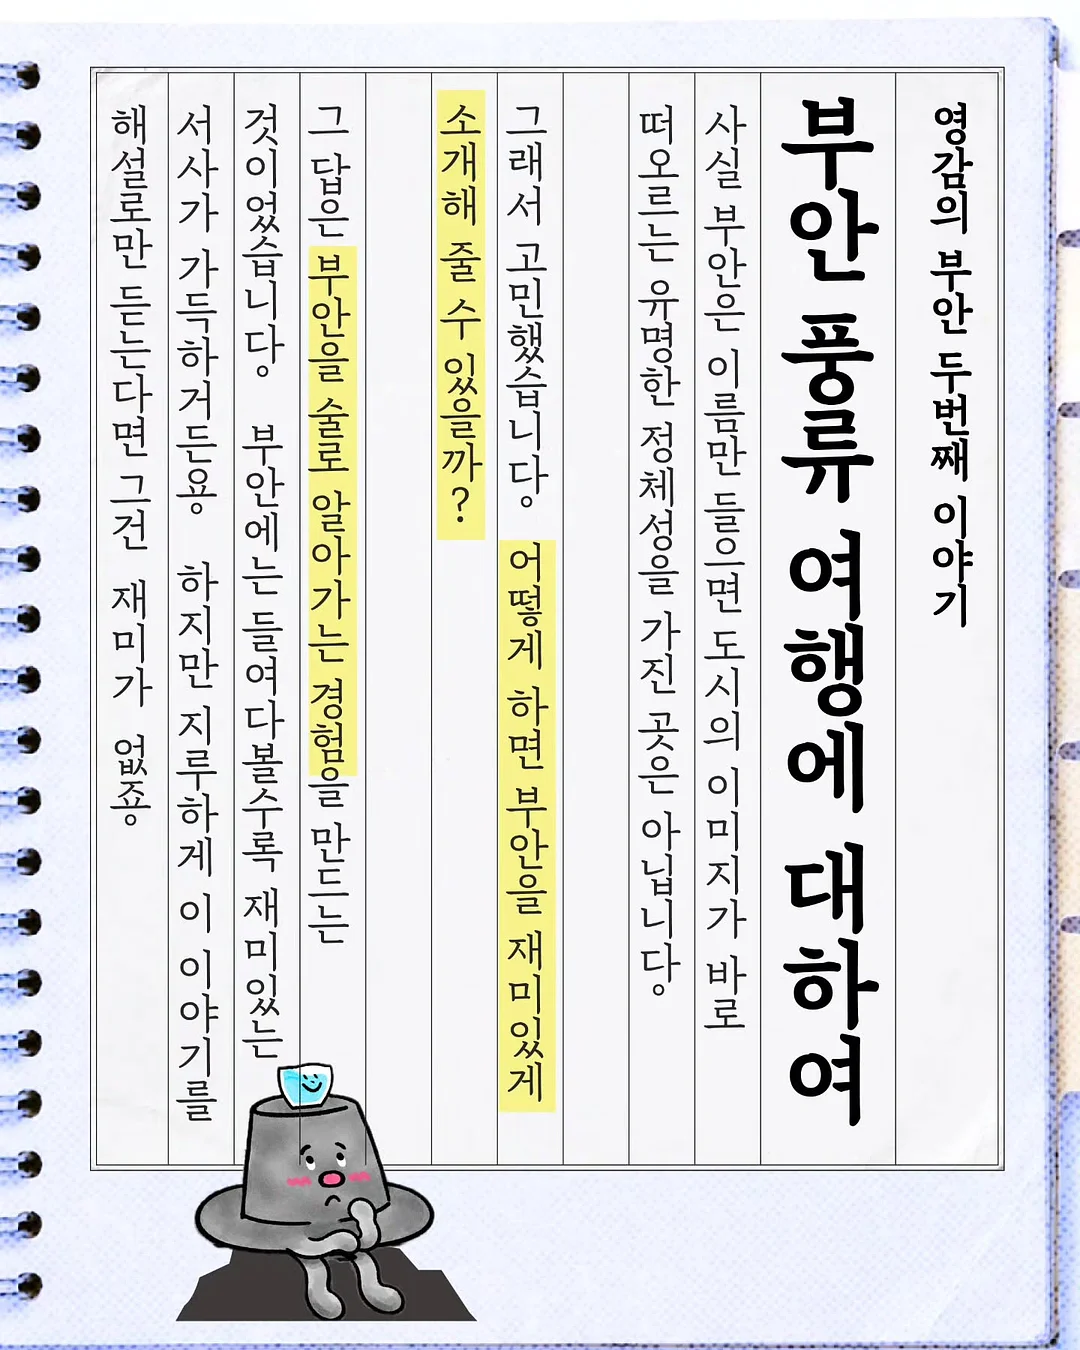 영감의 부안 두번째 이야기
부안 풍류 여행에 대하여
사실 부안은 이름만 들으면 도시의 이미지가 바로
떠오르는 유명한 정체성을 가진 곳은 아닙니다.
그래서 고민했습니다. 어떻게 하면 부안을 재미있게
소개해 줄 수 있을까?
그 답은 부안을 술로 알아가는 경험을 만드는
것이었습니다. 부안에는 들여다볼수록 재미있는
서사가 가득하거든요. 하지만 지루하게 이 이야기를
해설로만 듣는다면 그건 재미가 없죠.